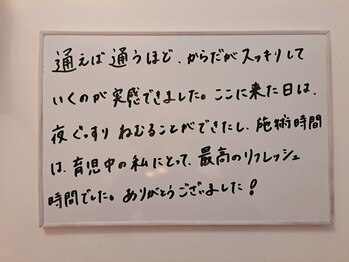 通えば通うほど、からだがスッキリして
いくのが実感できました。ここに来た日は、
夜ぐっすりねむることができたし、施術時間
は、育児中の私にとって、最高のリフレッシュ
時間でした。ありがとうございました!